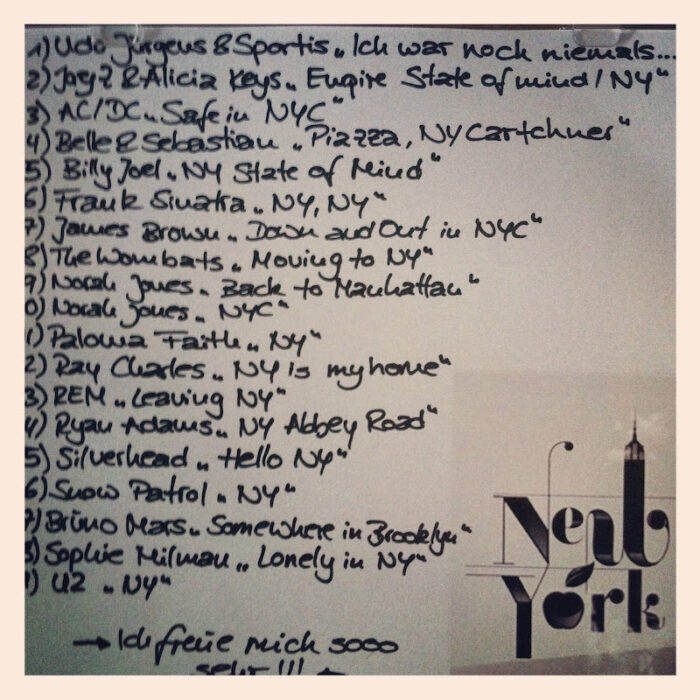 1) Udo Jürgens & Sportis „Ich war noch niemals...
2) Jay Z & Alicia Keys „Empire State of mind / NY“
3) AC/DC „Safe in NYC“
4) Belle & Sebastian „Piazza, NY Cartchner“
5) Billy Joel „NY State of Mind“
6) Frank Sinatra „NY, NY“
7) James Brown „Down and Out in NYC“
8) The Wombats „Moving to NY“
9) Norah Jones „Back to Manhattan“
0) Norah Jones „NYC“
1) Paloma Faith „NY“
2) Ray Charles „NY is my home“
3) REM „Leaving NY“
4) Ryan Adams „NY Abbey Road“
5) Silverhead „Hello NY“
6) Snow Patrol „NY“
7) Bruno Mars „Somewhere in Brooklyn“
8) Sophie Milman „Lonely in NY“
9) U2 „NY“
→ Ich freue mich sooo
sehr !!! ←
New
York